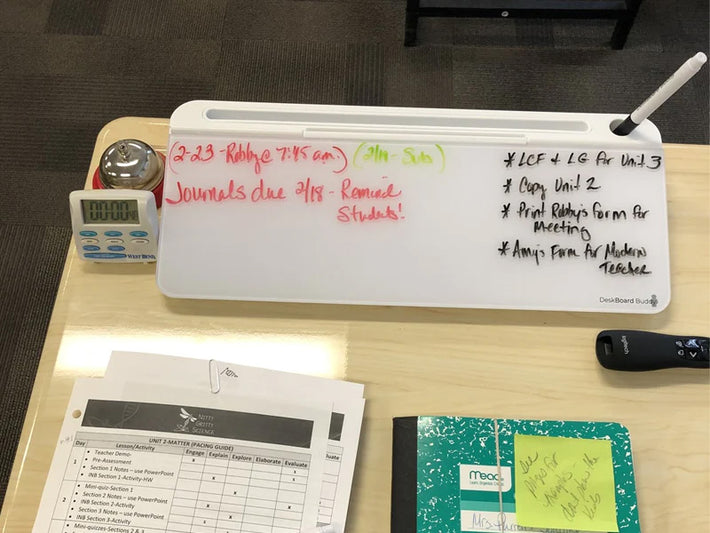 (2-23-Robby@ 7:45 am.) (2/14- Subs)
Journals due 2/18 - Remind
Students!
* LCF & LG for Unit 3
* Copy Unit 2
* Print Robby's form for
Meeting
* Amy's Form for Modern
Teacher
DeskBoard Buddy
00:00
WEST BEND
logitech
NITTY
GRITTY
SCIENCE
UNIT 2-MATTER (PACING GUIDE)
Day Lesson/Activity Engage Explain Explore Elaborate Evaluate
1 Teacher Demo- x
Pre-Assessment x
Section 1 Notes – use PowerPoint x
INB Section 1-Activity-HW x
2 Mini-quiz-Section 1 x
Section 2 Notes – use PowerPoint x
INB Section 2-Activity x
Section 3 Notes – use PowerPoint x
INB Section 3-Activity x
Mini-quizzes-Sections 2 & 3
aluate
Mead
See
for
the
Mrs.